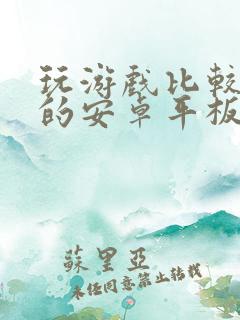 玩游戏比较
的安卓平板
蘇里亞
未经同意禁止转载